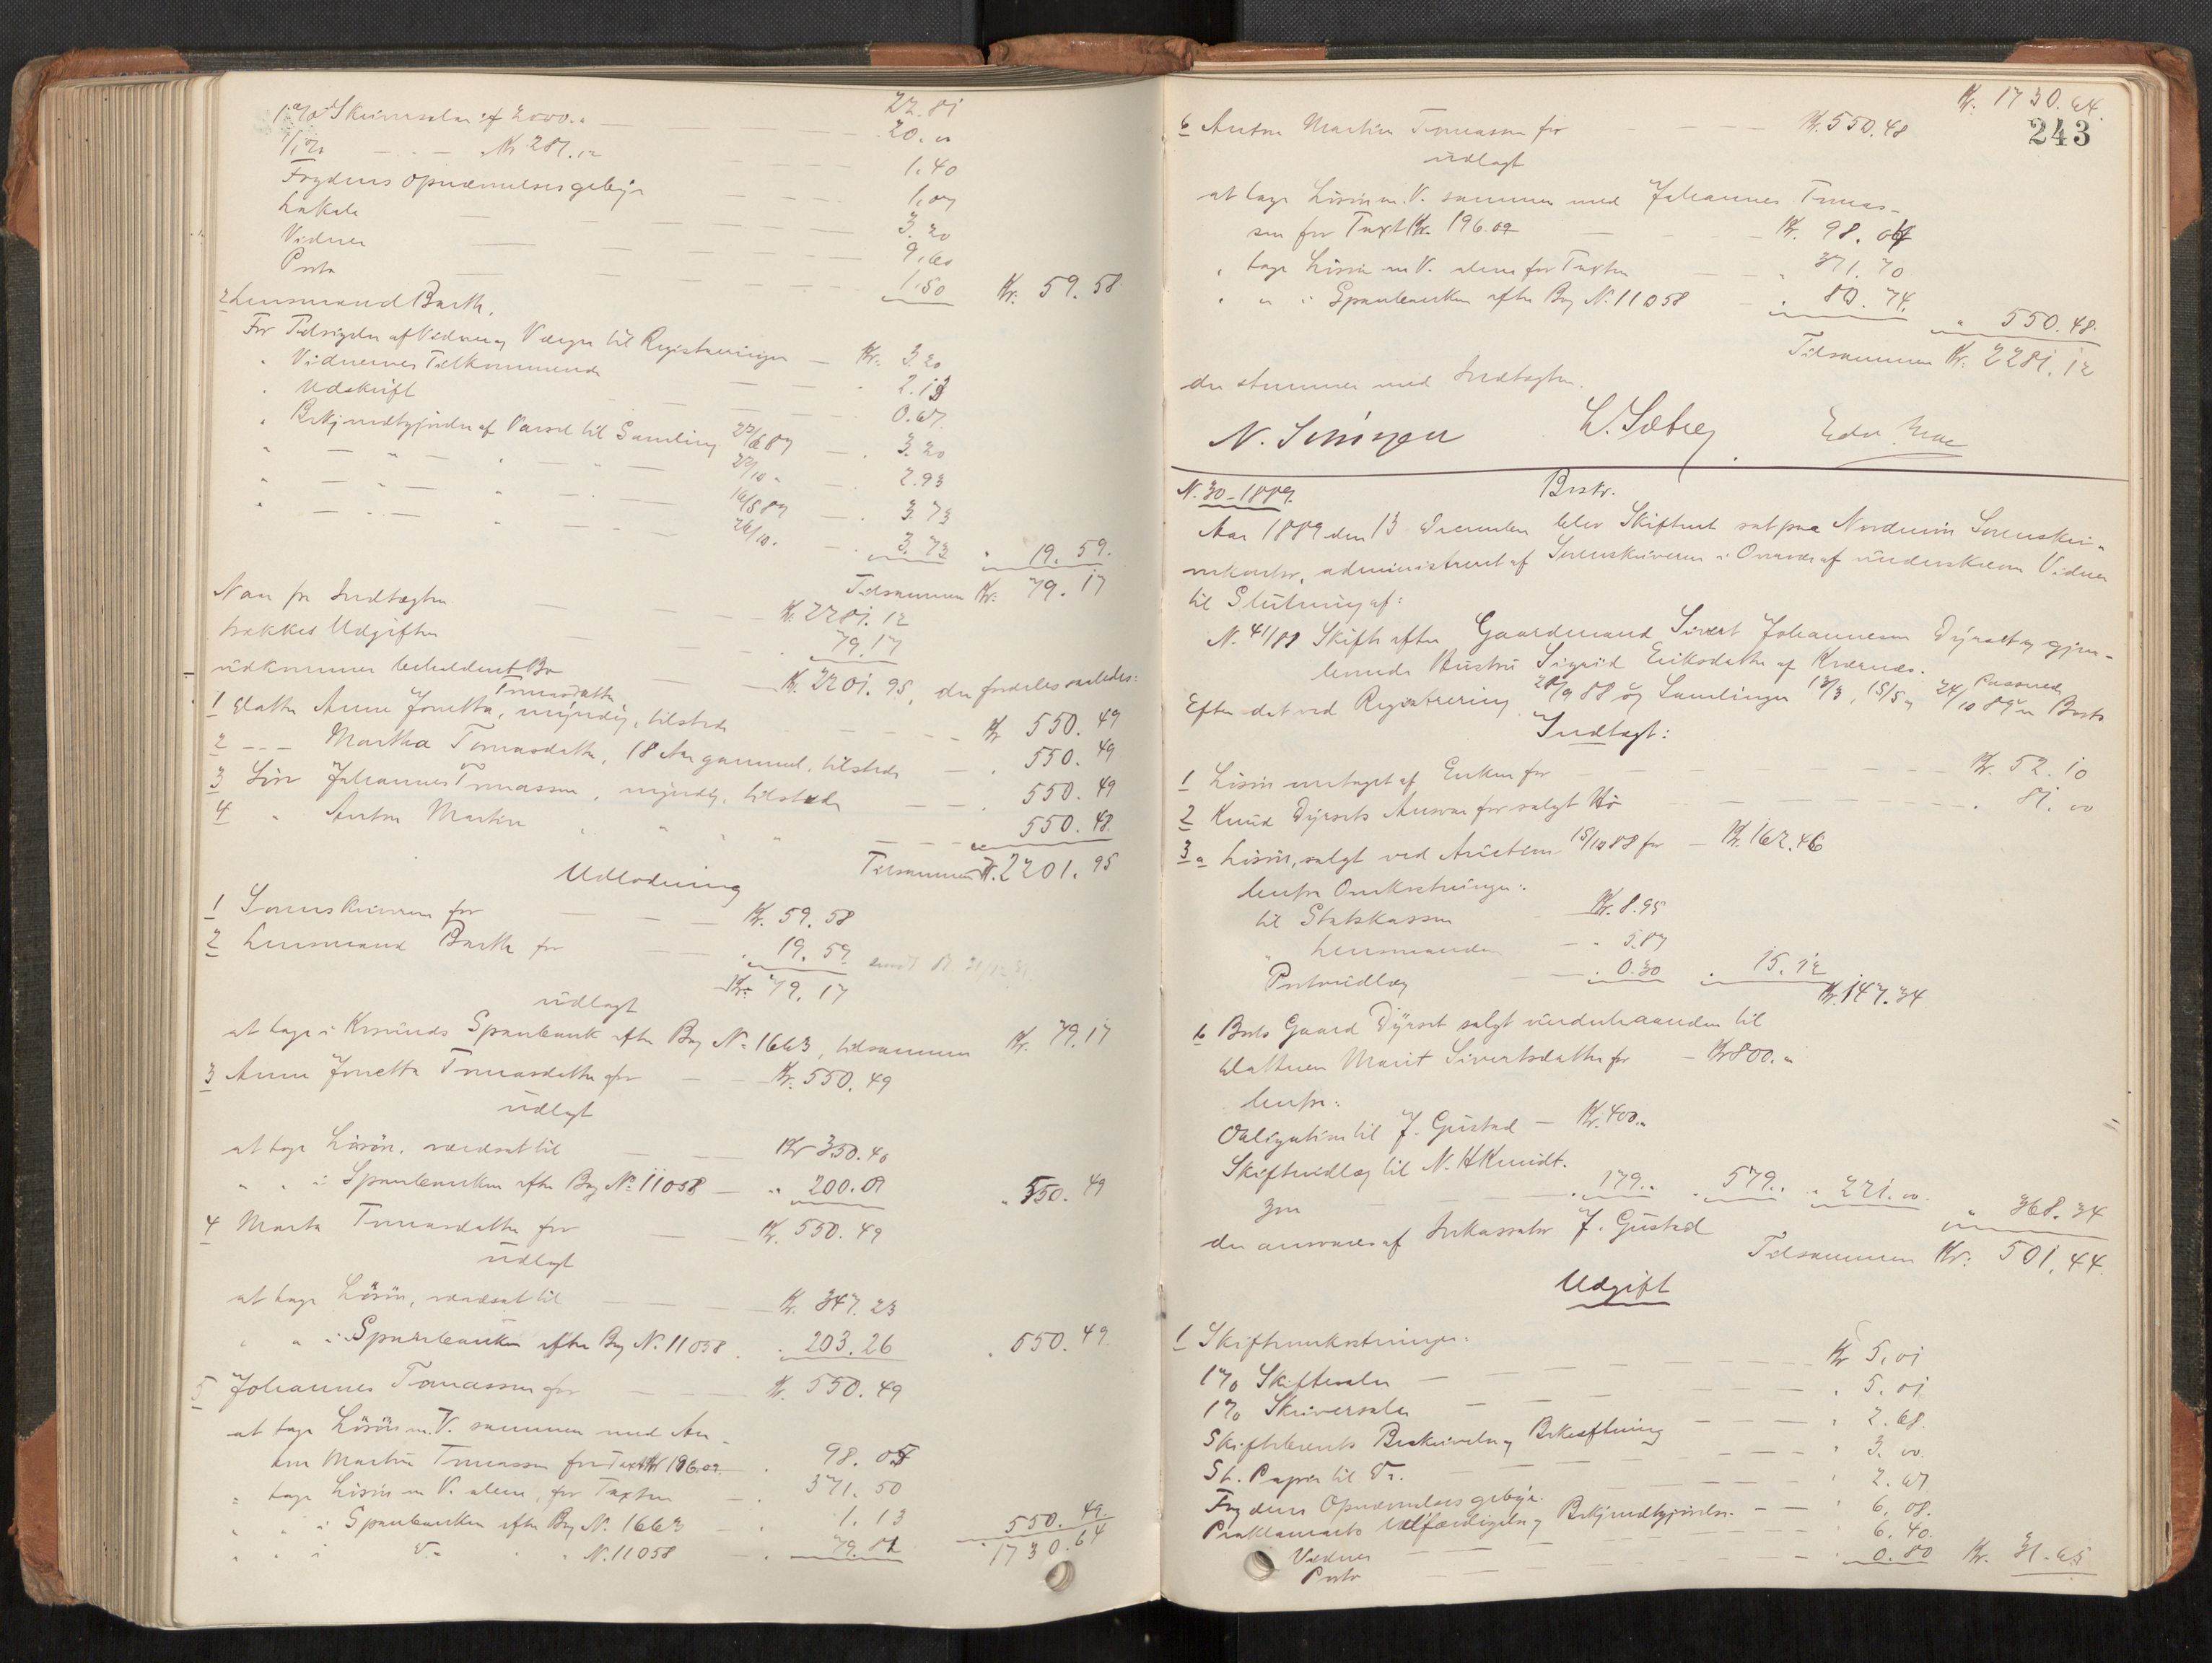 22.81
1% Skriversalær af 2000.. — 20.00
1/1 % — . — Kr. 281.12 — 1.40
Fogdens Opnævnelsesgebyr — 1.07
Lokale — 3.20
Vidner — 9.60
Porto — 1.50 Kr. 59.58
2 Lensmand Barth.
For Tilsigelse af Vidner og Værger til Registreringen — Kr. 3.20
" Vidnernes Tilkommende — 2.13
" Udskrift — 0.67
" Bekjendtgjørelse af Varsel til Samling 23/6 87 — 3.20
" — " — " — 27/10 " — 2.93
" — " — " — 16/5 89 — 3.73
" — " — " — 26/10 " — 3.73 " 19.59.
Tilsammen Kr. 79.17
Naar fra Indtægten — Kr. 2281.12
trækkes Udgiften — 79.17
udkommer beholdent Bo — Kr. 2201.95, der fordeles saaledes:
1 Datter Anne Jonetta Tomasdatter, myndig, tilstede — Kr. 550.49
2 — — Martha Tomasdatter, 18 Aar gammel, tilstede — " 550.49
3 Søn Johannes Tomassen, myndig, tilstede — " 550.49
4 " Anton Martin " " " — 550.48.
Tilsammen Kr. 2201.95
Udlodning
1 Sorenskriveren for — Kr. 59.58
2 Lensmand Barth for — " 19.59
Kr. 79.17
udlagt
at tage i Kvernæs Sparebank efter Bog No 1663, tilsammen Kr. 79.17
3 Anne Jonetta Tomasdatter for — Kr. 550.49
udlagt
at tage Løsøre, værdsat til — Kr 350.40
" " i Sparebanken efter Bog No 11058 — " 200.09 " 550.49
4 Marta Tomasdatter for — Kr. 550.49
udlagt
at tage Løsøre, værdsat til — Kr. 347.23
" " i Sparebanken efter Bog N. 11058 . 203.26 . 550.49
5 Johannes Tomassen for — Kr. 550.49
at tage Løsøre m. V. sammen med An-
ton Martin Tomassen for Taxt Kr 196.09 . 98.05
" tage Løsøre m V. alene, for Taxten — 371.50
" " i Sparebanken efter Bog N. 1663 — 1.13
" " i do " " N. 11058 — . 79.81 550.49
1730.64
Kr. 1730.64.
243
6 Anton Martin Tomassen for — Kr. 550.48
udlagt
at tage Løsøre m. V. sammen med Johannes Tomas-
sen for Taxt Kr. 196.09 — Kr. 98.04
" tage Løsøre m V. alene for Taxten — " 371.70
" " i Sparebanken efter Bog N. 11058 — . 80.74. " 550.48.
Tilsammen Kr. 2281.12
der stemmer med Indtægten.
N. 30-1889.
Aar 1889 den 13 December blev Skifteret sat paa Nordmøre Sorenskri-
verkontor, administreret af Sorenskriveren i Overvær af underskrevne Vidner
til Slutning af:
N. 41/88 Skifte efter Gaardmand Sivert Johannesen Dyrset og gjen-
levende Hustru Sigrid Eriksdatter af Kvernæs.
Efter det ved Registrering 20/9 88 og Samlinger 13/3, 15/5 og 24/10 89 Passerede er Boets
Indtægt:
1 Løsøre modtaget af Enken for — Kr. 52.10
2 Knud Dyrsets Ansvar for solgt Hø — " 81.00
3 a Løsøre, solgt ved Auction 15/10 88 for — Kr. 162.46
herfra Omkostninger:
til Statskassen Kr. 8.95
" Lensmanden — " 5.87
Portoudlæg — " 0.30 . 15.12
Kr. 147.34
b Boets Gaard Dyrset solgt underhaanden til
Datteren Marit Sivertsdatter for — Kr 800.00
herfra:
Obligation til J. Gustad — Kr. 400..
Skifteudlæg til N. H Knudt-
zon — 179.. . 579.. " 221.00. " 368.34
der ansvares af Inkassator J. Gustad
Tilsammen Kr: 501.44.
Udgift
1 Skifteomkostninger:
1% Skiftesalær — Kr 5.01
1% Skriversalær — " 5.01
Skiftebrevets Beskrivelse og Bekræftning — " 2.68.
St. Papir til do. — " 3.00.
Fogdens Opnævnelsesgebyr. — " 2.67
Proklamaets Udfærdigelse og Bekjendtgjørelse. — " 6.08.
Vidner — 6.40.
Porto — " 0.80 Kr. 31.65